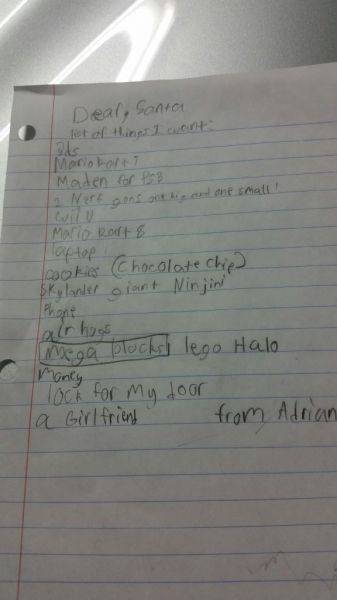 Dear, Santa
list of things I want:
3ds
Mario kart 7
Maden for ps3
2 Nerf guns one big and one small!
wii U
Mario kart 8
laptop
cookies (Chocolate chip)
Skylander giant Ninjini
Phone
air hogs
mega blocks lego Halo
Money
lock for my door
a Girlfriend from Adrian